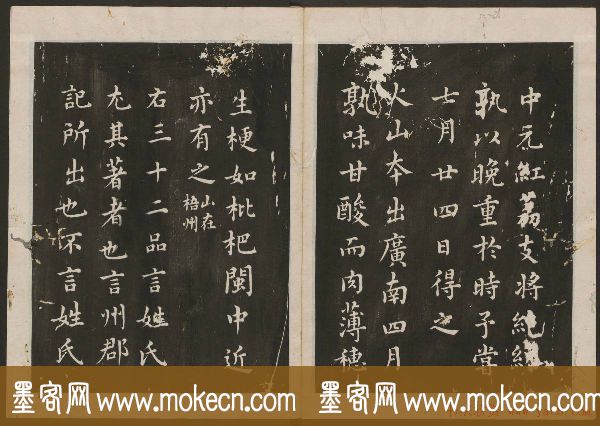 中元紅荔支將絕纔
孰以晚重於時予嘗
七月廿四日得之
火山夲出廣南四月
孰味甘酸而肉薄穗
生梗如枇杷閩中近
亦有之山在梧州
右三十二品言姓氏
尤其著者也言州郡
記所出也不言姓氏
墨客网 www.mokecn.com 墨客网 www.mokecn.com